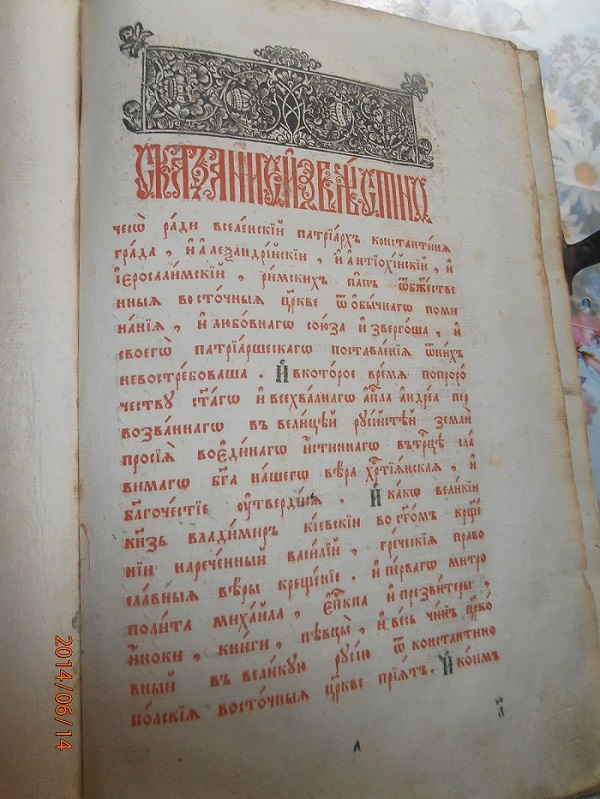 Сказание извѣстно
чесѡ̀ ра́ди вселе́нскїй патрїа́рхъ константи́нѧ
гра́да , и҆ а҆леѯандрі́йскїй , и҆ а҆нтїохі́йскїй , и҆
і҆ерⷭ҇оⷭалимскїй , ри́мскихъ па́пъ ѿ бж҃е́стве
нныѧ восто́чныѧ цр҃кве ѿ ѻ҆бы́чнагѡ поми
на́нїѧ , и҆ любо́внагѡ сою́за и҆зверго́ша , и҆
своегѡ̀ патрїа́ршескагѡ поставле́нїѧ ѿ ни́хъ
невостре́боваша . И҆ в которое время по проро́
честву ст҃а́гѡ и҆ всехва́лнагѡ а҆пⷭ҇ла а҆ндре́а пер
возва́ннагѡ въ вели́цѣй рꙋсі́йстѣй землѝ
просїѧ̀ во є҆ди́нагѡ и҆́стиннагѡ въ трⷪ҇цѣ сла́
вимагѡ бг҃а на́шегѡ вѣ́ра хрⷭ҇тїѧ́нская , и҆
бл҃гоче́стїе ᲂу҆тверди́сѧ . И҆ ка́кѡ вели́кїй
кнѧ́зь влади́миръ кі́евскїй во ст҃о́мъ крщ҃е́
нїи нарече́нный васи́лїй , гре́ческїѧ право
сла́вныѧ вѣ́ры креще́нїе . и҆ пе́рвагѡ митро
поли́та миха́ила , є҆пⷭ҇кпа и҆ презви́теры ,
и҆́ноки , кни́ги , пѣвцы̀ , и҆ ве́сь чи́нъ цр҃ко́
вный въ вели́кꙋю рꙋсі́ю ѿ константино
по́лскїѧ восто́чныѧ цр҃кве прїѧ́тъ . И҆ ко́имъ
л